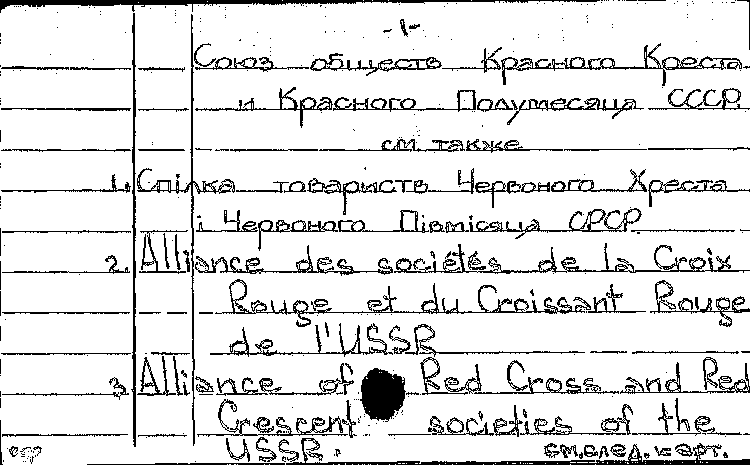 -1-
Союз обществ Красного Креста
и Красного Полумесяца СССР.
см. также
1. Спілка товариств Червоного Хреста
і Червоного Півмісяця СРСР.
2. Alliance des sociétés de la Croix
Rouge et du Croissant Rouge
de l'USSR
3. Alliance of Red Cross and Red
Crescent societies of the
USSR.
см.след.карт.